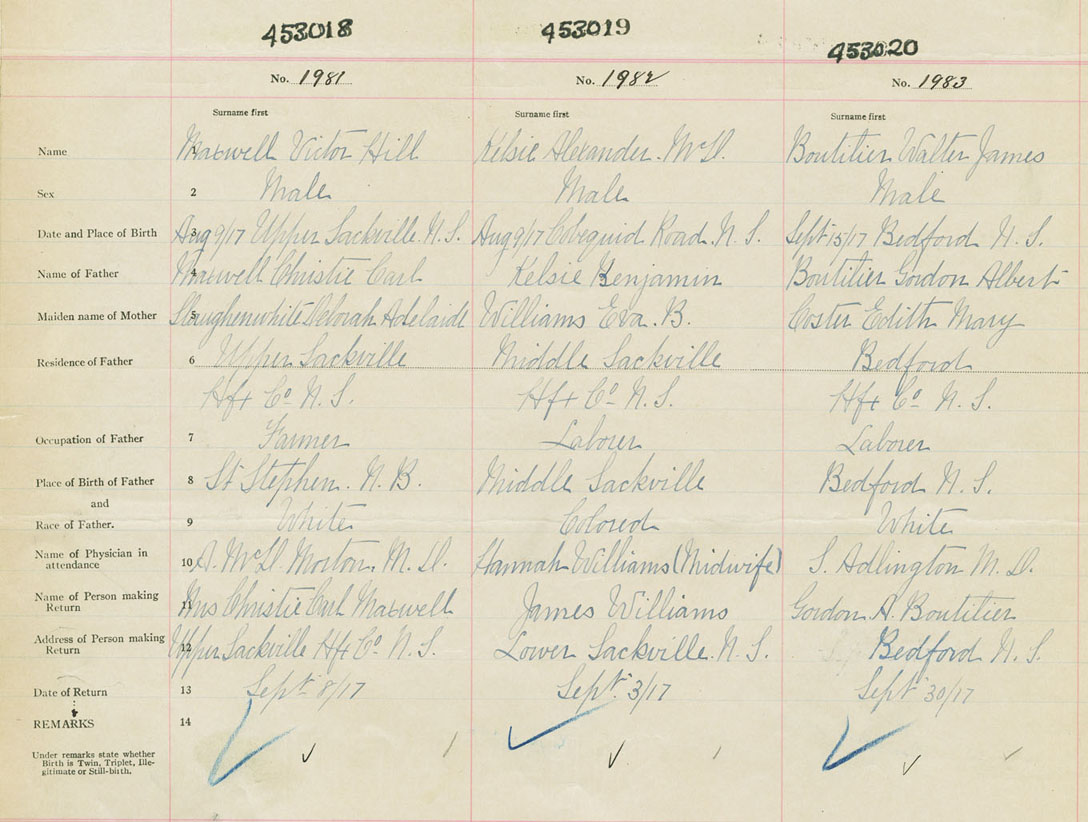 453018 453019 453020
No. 1981 No. 1982 No. 1983
Surname first Surname first Surname first
Name Maxwell Victor Hill Kelsie Alexander. McD. Boutilier Walter James
Sex 2 Male Male Male
Date and Place of Birth 3 Aug 9/17 Upper Sackville. N. S. Aug 9/17 Cobequid Road. N. S. Sept 15/17 Bedford N. S.
Name of Father 4 Maxwell Christie Earl Kelsie Benjamin Boutilier Gordon Albert
Maiden name of Mother 5 Slaughenwhite Deborah Adelaide Williams Eva. B. Coster Edith Mary
Residence of Father 6 Upper Sackville Middle Sackville Bedford
Hfx Co N. S. Hfx Co N. S. Hfx Co N. S.
Occupation of Father 7 Farmer Laborer Laborer
Place of Birth of Father 8 St Stephen. N. B. Middle Sackville Bedford N. S.
and
Race of Father. 9 White Colored White
Name of Physician in
attendance 10 A. McD. Morton. M. D. Hannah Williams (Midwife) S. Adlington M. D.
Name of Person making
Return 11 Mrs Christie Earl Maxwell James Williams Gordon A. Boutilier
Address of Person making
Return 12 Upper Sackville Hfx Co. N. S. Lower Sackville. N. S. Bedford N. S.
Date of Return 13 Sept 8/17 Sept. 3/17 Sept 30/17
REMARKS 14
Under remarks state whether
Birth is Twin, Triplet, Ille-
gitimate or Still-birth.